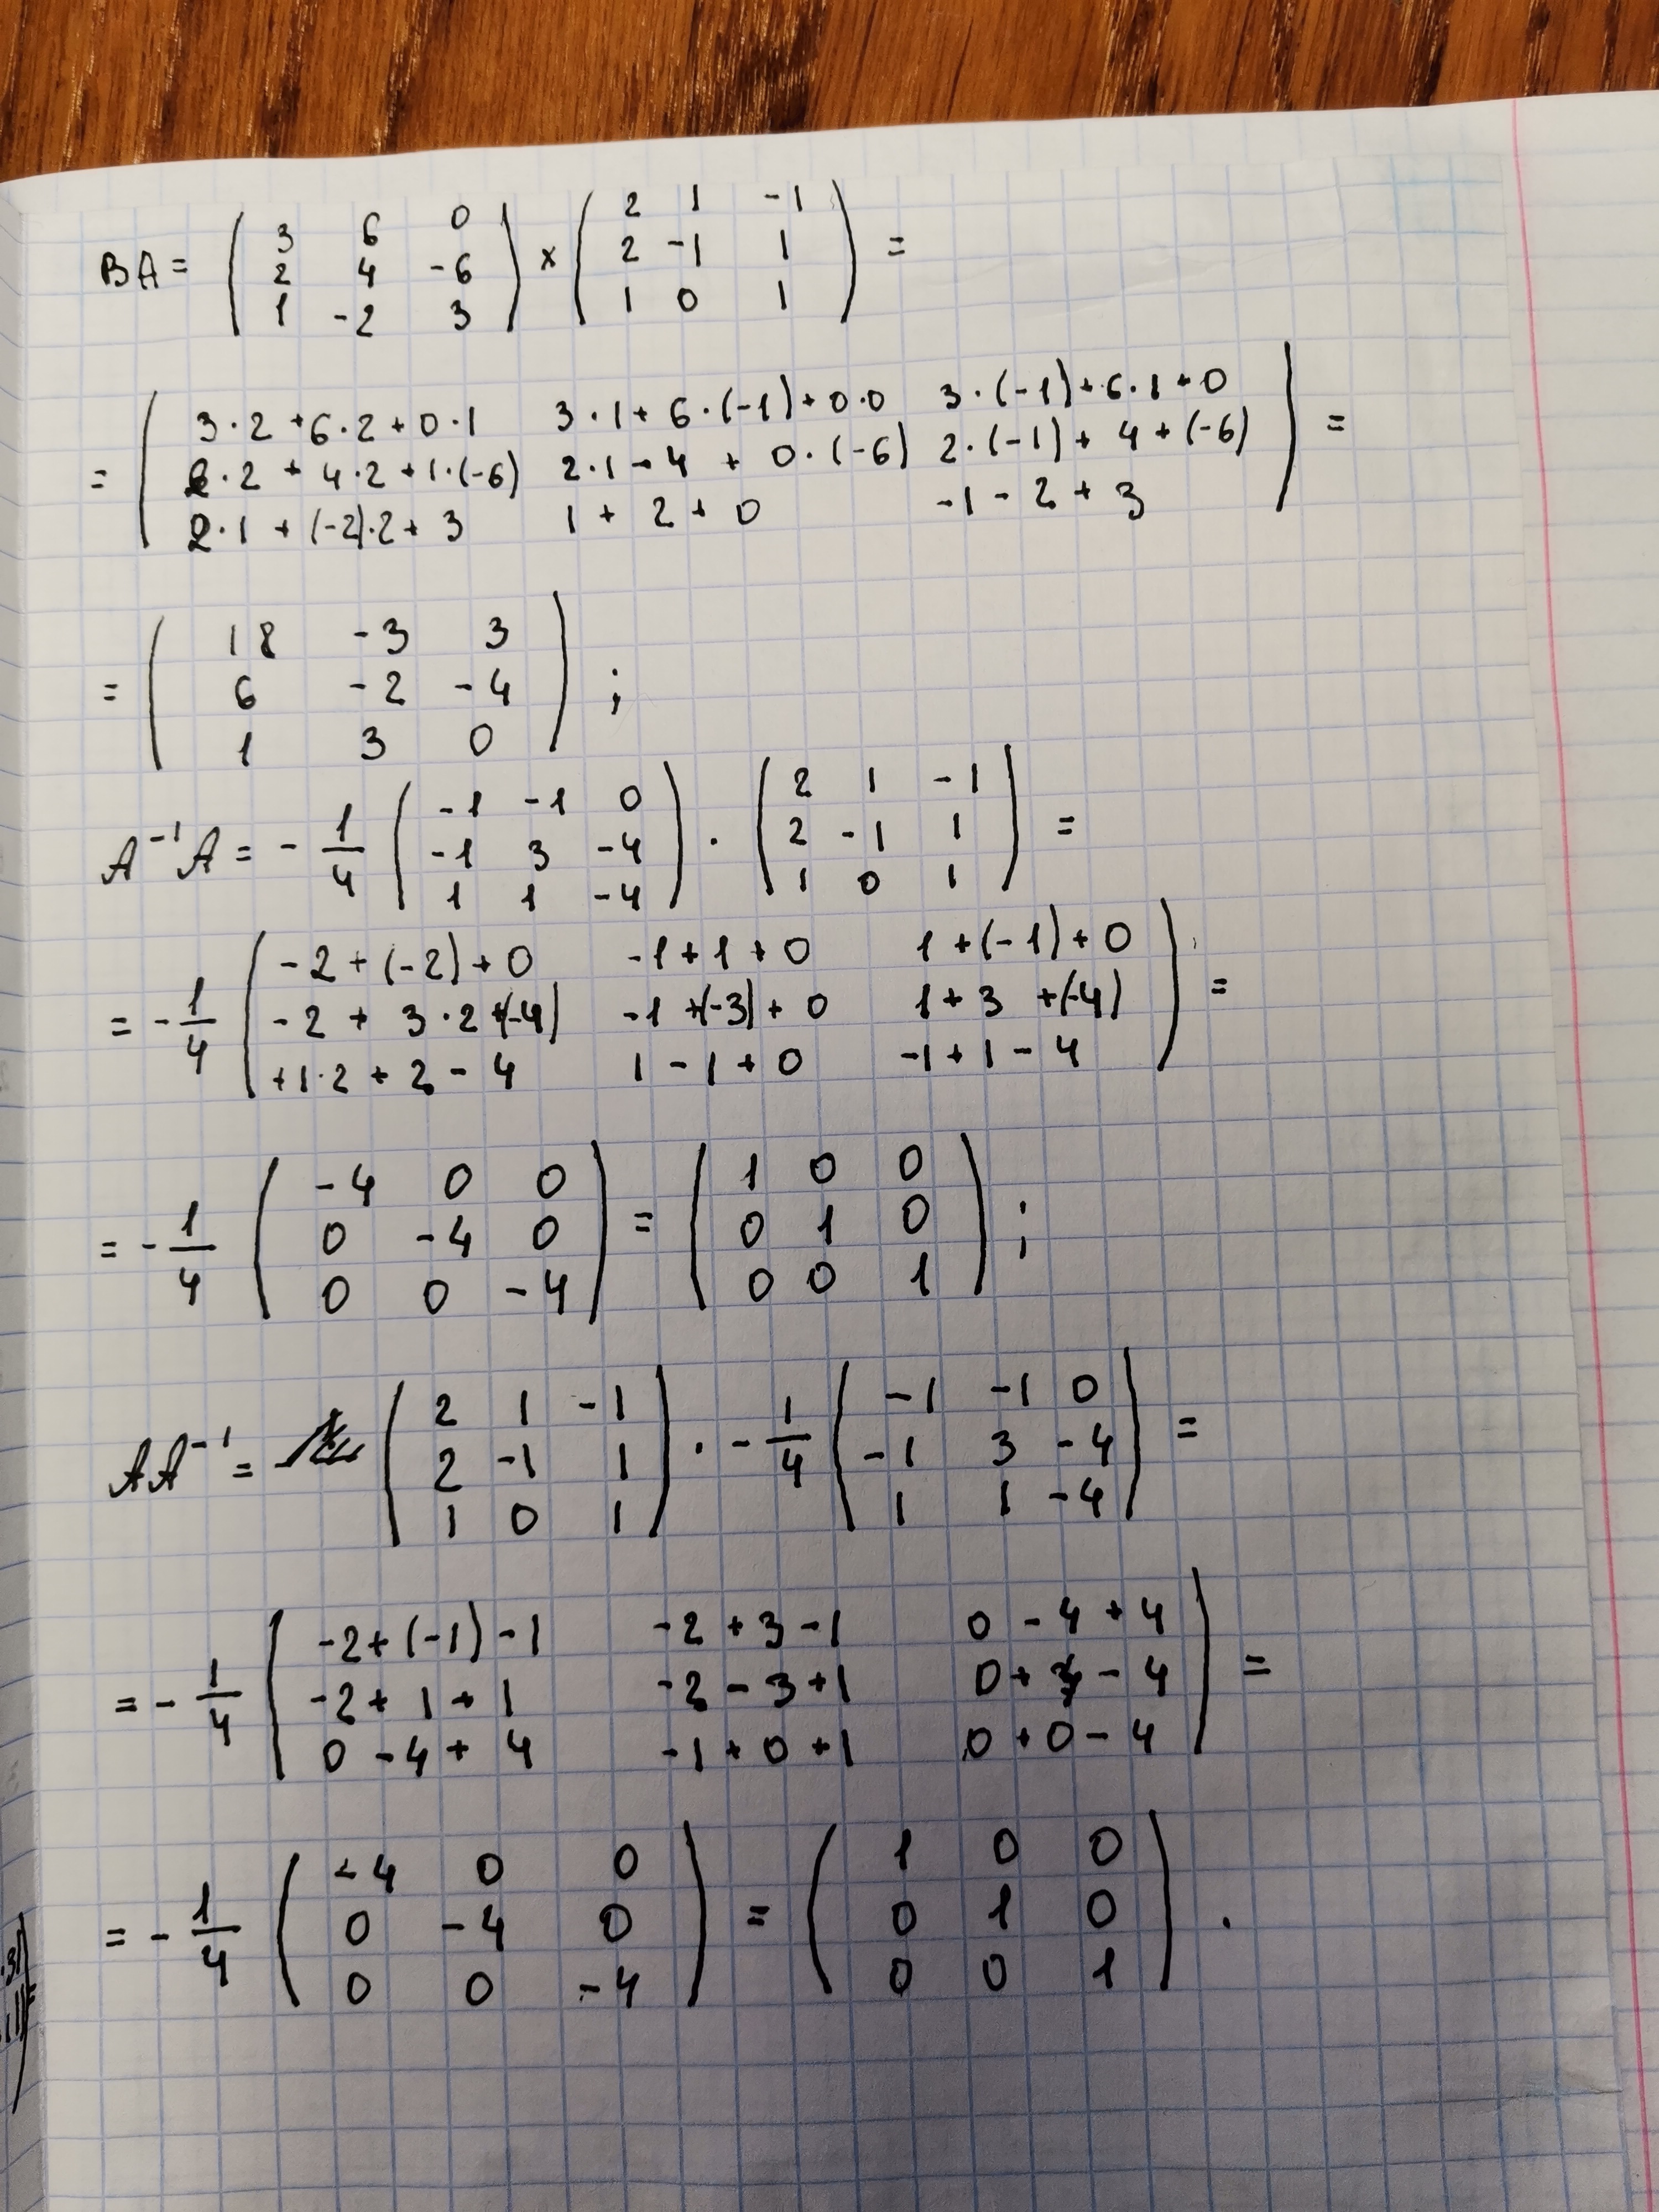 BA = ( 3 6 0 ) × ( 2 1 -1 ) =
2 4 -6 2 -1 1
1 -2 3 1 0 1
= ( 3·2+6·2+0·1 3·1+6·(-1)+0·0 3·(-1)+6·1+0 ) =
2·2+4·2+1·(-6) 2·1-4+0·(-6) 2·(-1)+4+(-6)
2·1+(-2)·2+3 1+2+0 -1-2+3
= ( 18 -3 3 ) ;
6 -2 -4
1 3 0
A⁻¹A = - 1/4 ( -1 -1 0 ) · ( 2 1 -1 ) =
-1 3 -4 2 -1 1
1 1 -4 1 0 1
= - 1/4 ( -2+(-2)+0 -1+1+0 1+(-1)+0 ) =
-2+3·2+(-4) -1+(-3)+0 1+3+(-4)
+1·2+2-4 1-1+0 -1+1-4
= - 1/4 ( -4 0 0 ) = ( 1 0 0 ) ;
0 -4 0 0 1 0
0 0 -4 0 0 1
AA⁻¹ = ( 2 1 -1 ) · - 1/4 ( -1 -1 0 ) =
2 -1 1 -1 3 -4
1 0 1 1 1 -4
= - 1/4 ( -2+(-1)-1 -2+3-1 0-4+4 ) =
-2+1+1 -2-3+1 0+4-4
0-4+4 -1+0+1 0+0-4
= - 1/4 ( -4 0 0 ) = ( 1 0 0 ) .
0 -4 0 0 1 0
0 0 -4 0 0 1